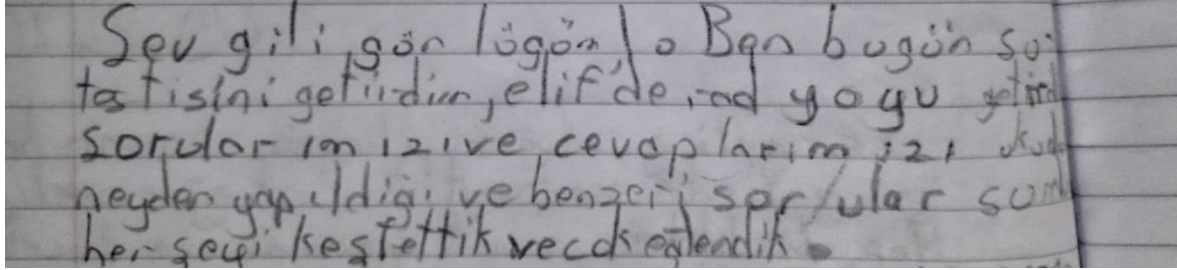 Sevgili günlügüm, Ben bugün su
testisini getirdim, elif'de radyoyu getird
sorularımızıve cevaplarımızı oku
neyden yapıldigi ve benzeri sorular sor
herşeyi keşfettik ve cok eğlendik.